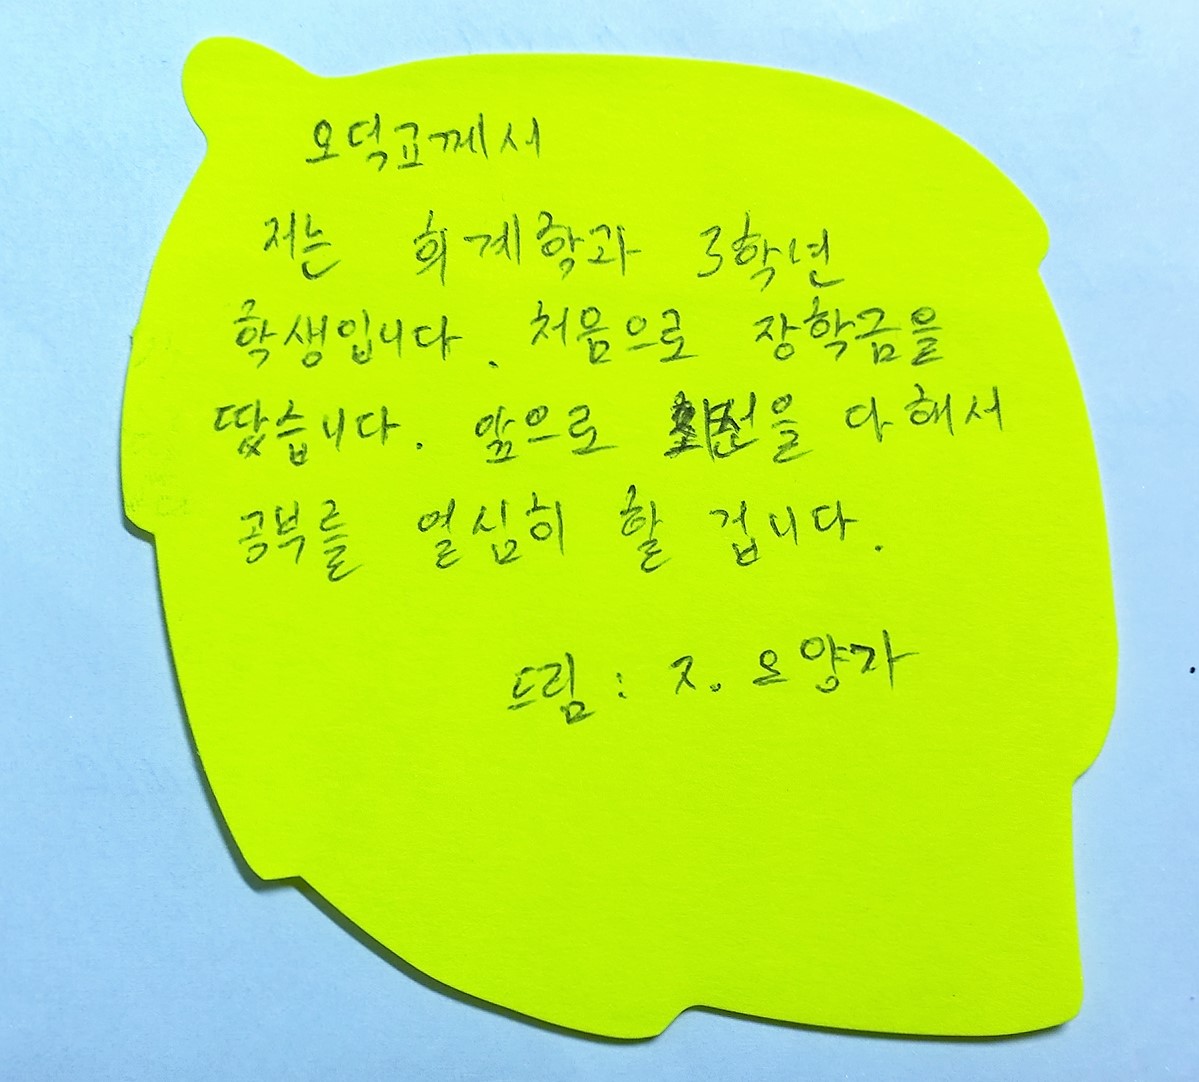 오덕교께서
저는 회계학과 3학년
학생입니다. 처음으로 장학금을
땄습니다. 앞으로 최선을 다해서
공부를 열심히 할 겁니다.
드림 : ㅈ. 오양가